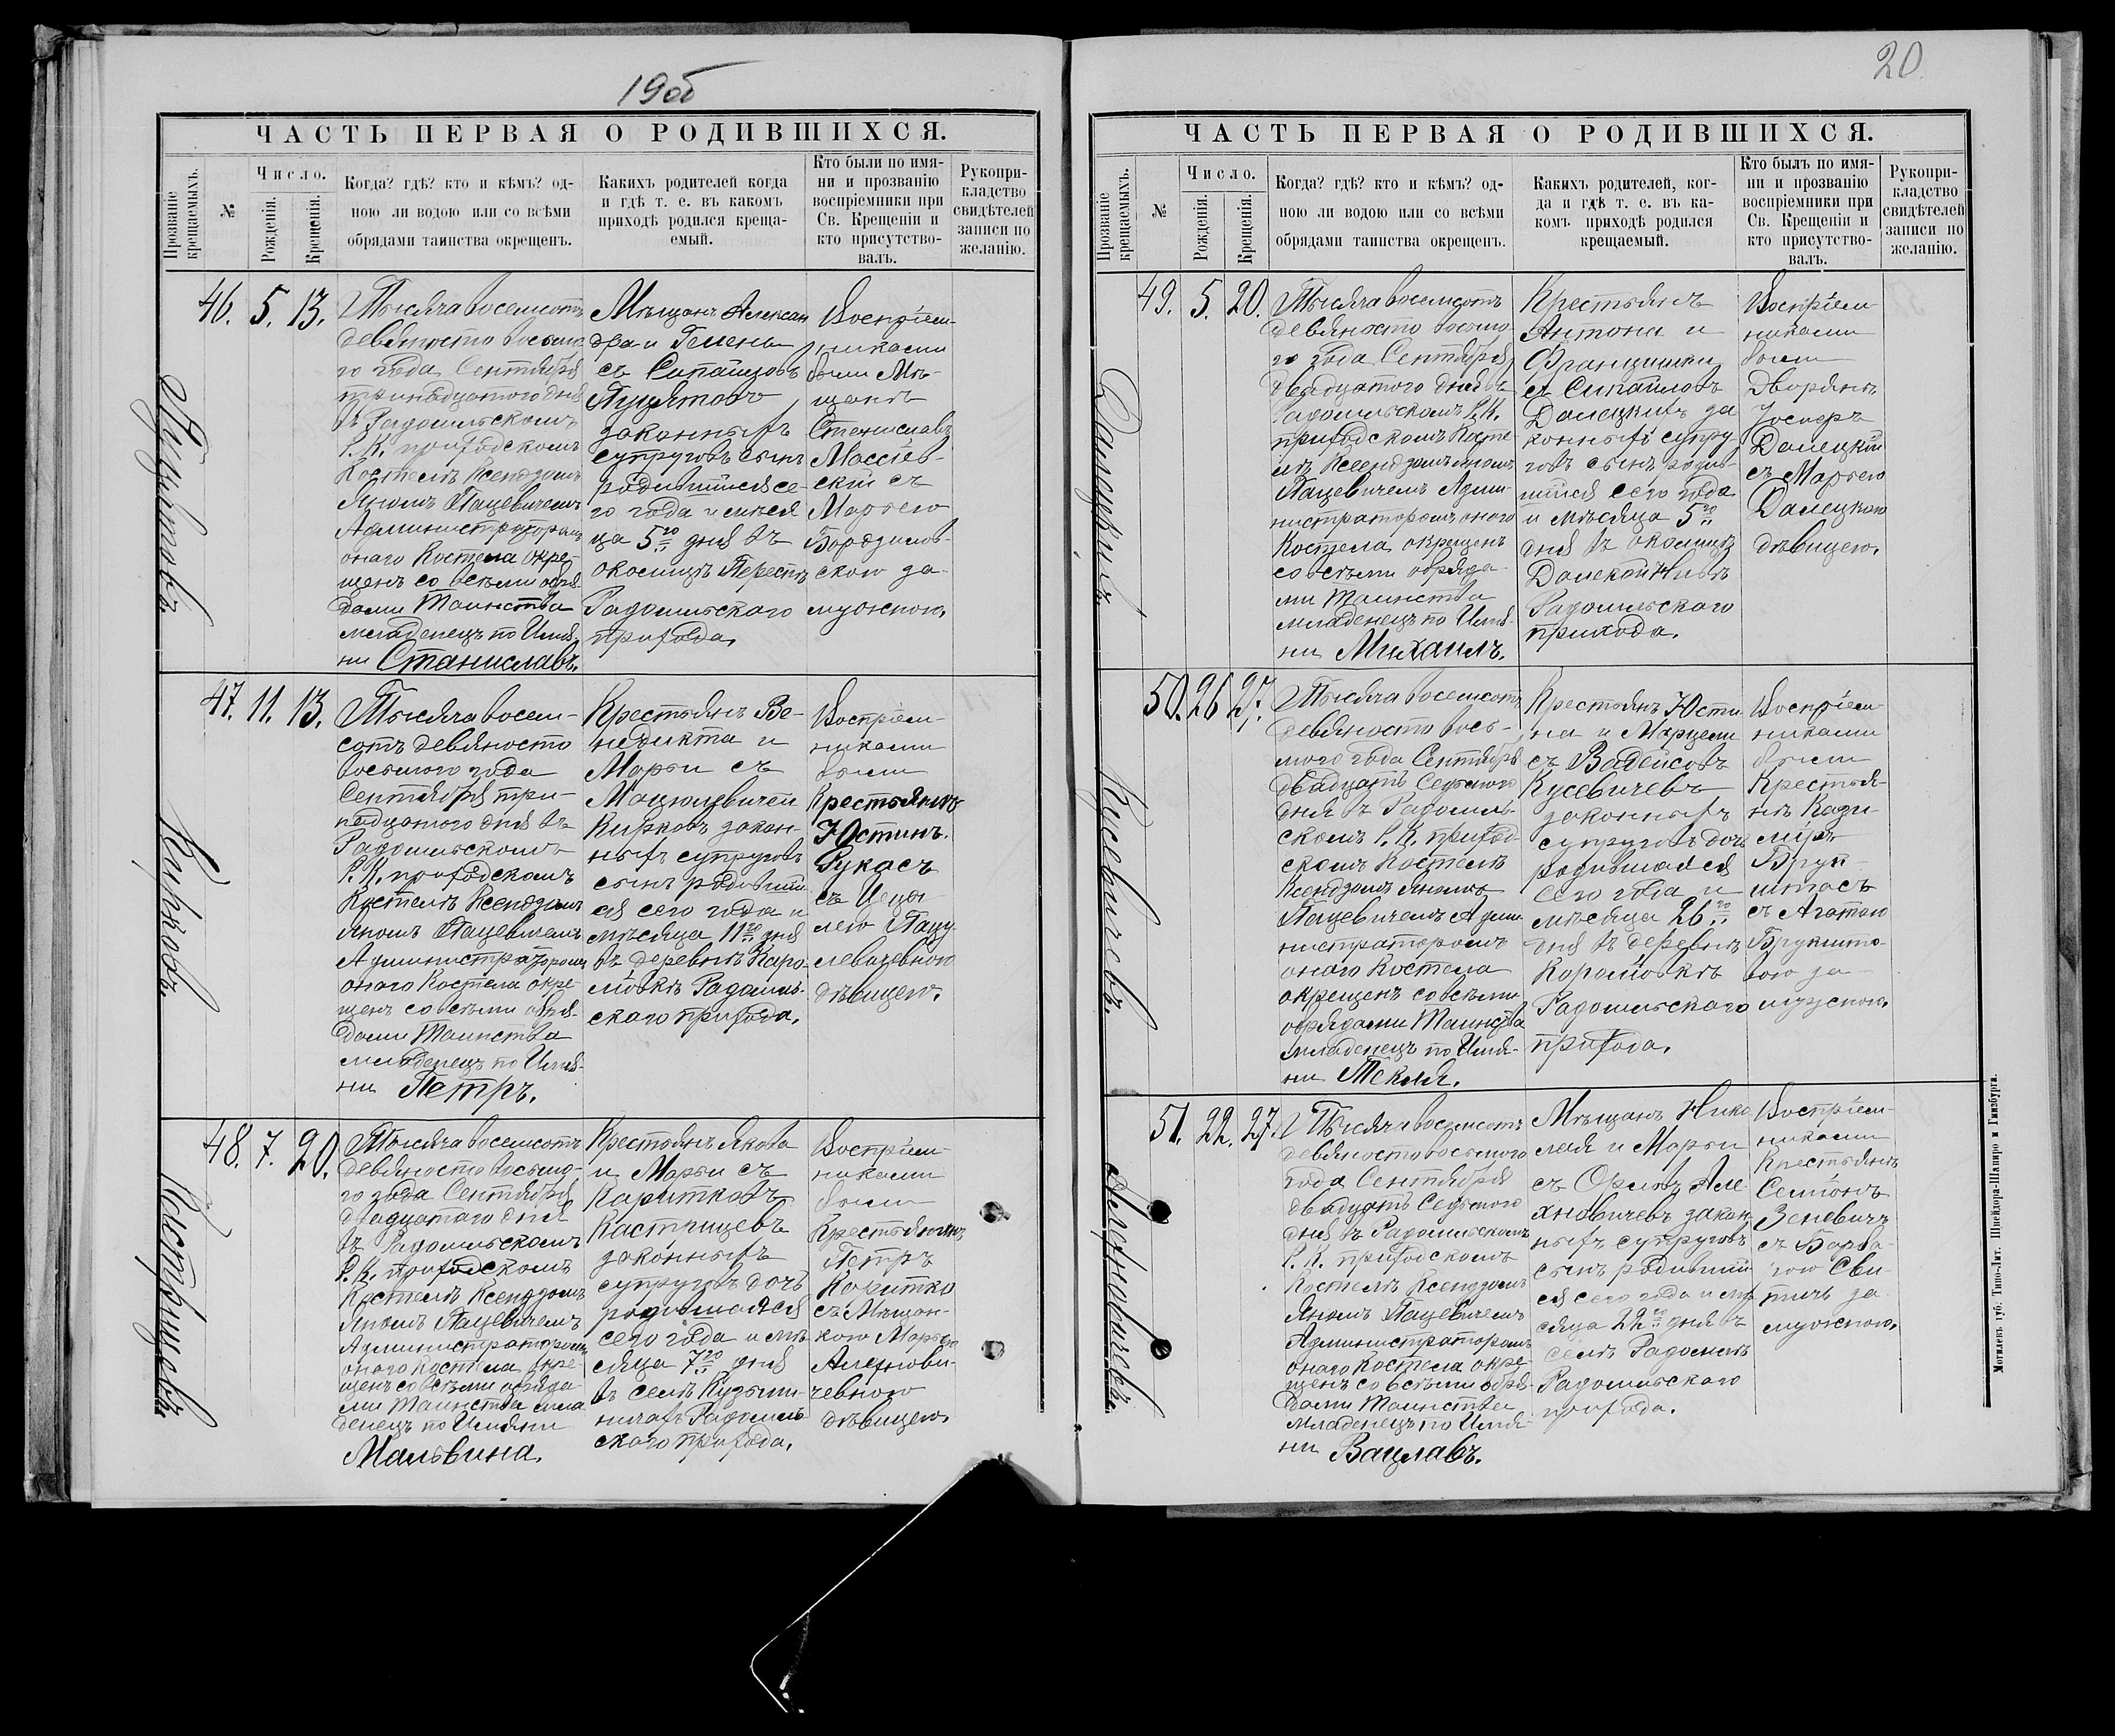 19об
ЧАСТЬ ПЕРВАЯ О РОДИВШИХСЯ.
Прозваніе крещаемыхъ.
№
Число.
Рожденія.
Крещенія.
Когда? гдѣ? кто и кѣмъ? од-
ною ли водою или со всѣми
обрядами таинства окрещенъ.
Какихъ родителей когда
и гдѣ т. е. въ какомъ
приходѣ родился креща-
емый.
Кто были по имя-
ни и прозванію
воспріемники при
Св. Крещеніи и
кто присутство-
валъ.
Рукопри-
кладство
свидѣтелей
записи по
желанію.
46. 5. 13.
Тысяча восемсотъ
девяносто восьмо
го года Сентября
тринадцатого дня
въ Радомльскомъ
Р. К. приходскомъ
Костелѣ Ксендзомъ
Яномъ Пацевичемъ
Администраторомъ
онаго Костела окре-
щенъ со всѣми обря-
дами Таинства
младенецъ по Имя-
ни Станиславъ.
Мѣщанъ Алексан
дра и Гелены
съ
законныхъ
супруговъ сынъ
родившійся се-
го года и мѣся
ца 5го дня въ
околицѣ
Радомльского
прихода.
Воспріем-
никами
были Мѣ-
щане
Станиславъ
съ
Марьею
за-
мужною.
47. 11. 13.
Кирковъ.
Тысяча восем-
сотъ девяносто
восьмого года
Сентября три-
надцатого дня въ
Радомльскомъ
Р. К. приходскомъ
Костелѣ Ксендзомъ
Яномъ Пацевичемъ
Администраторомъ
онаго Костела окре-
щенъ со всѣми обря-
дами Таинства
младенецъ по Имя-
ни Петръ.
Крестьянъ Ве-
недикта и
Марьи съ
Мацюлевичей
Кирковъ закон-
ныхъ супруговъ
сынъ родивший
ся сего года и
мѣсяца 11го дня
въ деревнѣ Каро-
лiовкѣ Радомль-
ского прихода.
Воспріем-
никами
были
Крестьянинъ
Юстинъ
Лукасъ
съ
дѣвицею.
48. 7. 20.
Кастрицевъ
Тысяча восемсотъ
девяносто восьмо-
го года Сентября
двадцатаго дня
въ Радомльскомъ
Р. К. приходскомъ
Костелѣ Ксендзомъ
Яномъ Пацевичемъ
Администраторомъ
онаго Костела окре-
щенъ со всѣми обряда
ми Таинства мла
денецъ по Имяни
Мальвина.
Крестьянъ Якова
и Марьи съ
Каритковъ
Кастрицевъ
законныхъ
супруговъ дочь
родившаяся
сего года и мѣ
сяца 7го дня
въ селѣ Кузьми-
ничахъ Радомль
ского прихода.
Воспріем-
никами
были
Крестьянинъ
Петръ
Каритко
съ Мѣщан-
кою Марьею
Алехнови-
чевною
дѣвицею.
20
ЧАСТЬ ПЕРВАЯ О РОДИВШИХСЯ.
Прозваніе крещаемыхъ.
№
Число.
Рожденія.
Крещенія.
Когда? гдѣ? кто и кѣмъ? од-
ною ли водою или со всѣми
обрядами таинства окрещенъ.
Какихъ родителей, ког-
да и гдѣ т. е. въ ка-
комъ приходѣ родился
крещаемый.
Кто былъ по имя-
ни и прозванію
воспріемники при
Св. Крещеніи и
кто присутство-
валъ.
Рукопри-
кладство
свидѣтелей
записи по
желанію.
49. 5. 20.
Далецкихъ
Тысяча восемсотъ
девяносто восьмо-
го года Сентября
двадцатого дня въ
Радомльскомъ Р. К.
приходскомъ Косте-
лѣ Ксендзомъ Яномъ
Пацевичемъ Адми-
нистраторомъ оного
Костела окрещенъ
со всѣми обряда-
ми Таинства
младенецъ по Имя-
ни Михаилъ.
Крестьянъ
Антона и
Францишки
съ Сипайловъ
Далецкихъ за
конныхъ супру-
говъ сынъ родив-
шійся сего года
и мѣсяца 5го
дня въ околицѣ
Радомльского
прихода.
Воспріем
никами
были
Дворянъ
Іосифъ
Далецкій
съ Марьею
Далецкою
дѣвицею.
50. 26 27.
Кисевичевъ.
Тысяча восемсотъ
девяносто вось-
мого года Сентября
двадцать седьмого
дня въ Радомль-
скомъ Р. К. приход-
скомъ Костелѣ
Ксендзомъ Яномъ
Пацевичемъ Адми
нистраторомъ
онаго Костела
окрещенъ со всѣми
обрядами Таинства
младенецъ по Имя-
ни Текля.
Крестьянъ Юсти-
на и Марцели
съ
Кисевичевъ
законныхъ
супруговъ дочь
родившаяся
сего года и
мѣсяца 26го
дня въ деревнѣ
Каролiовкѣ
Радомльского
прихода.
Воспріем
никами
были
Крестья-
не Кази-
міръ
съ Агатою
за-
мужною.
51. 22. 27.
Алехновичевъ.
Тысяча восемсотъ
девяносто восьмого
года Сентября
двадцать седьмого
дня въ Радомльскомъ
Р. К. приходскомъ
Костелѣ Ксендзомъ
Яномъ Пацевичемъ
Администраторомъ
онаго Костела окре-
щенъ со всѣми обря-
дами Таинства
младенецъ по Имя-
ни Вацлавъ.
Мѣщанъ Нико
лая и Марьи
съ Але-
хновичевъ закон
ныхъ супруговъ
сынъ родивший
ся сего года и мѣ
сяца 22го дня въ
селѣ Радомлѣ
Радомльского
прихода.
Воспріем-
никами
Крестьянъ
Семіонъ
Зеневичъ
съ Варва-
рою
за
мужною.
Могилевъ губ. Типо-Лит. Шнейдора-Шапиро и Гинзбурга.